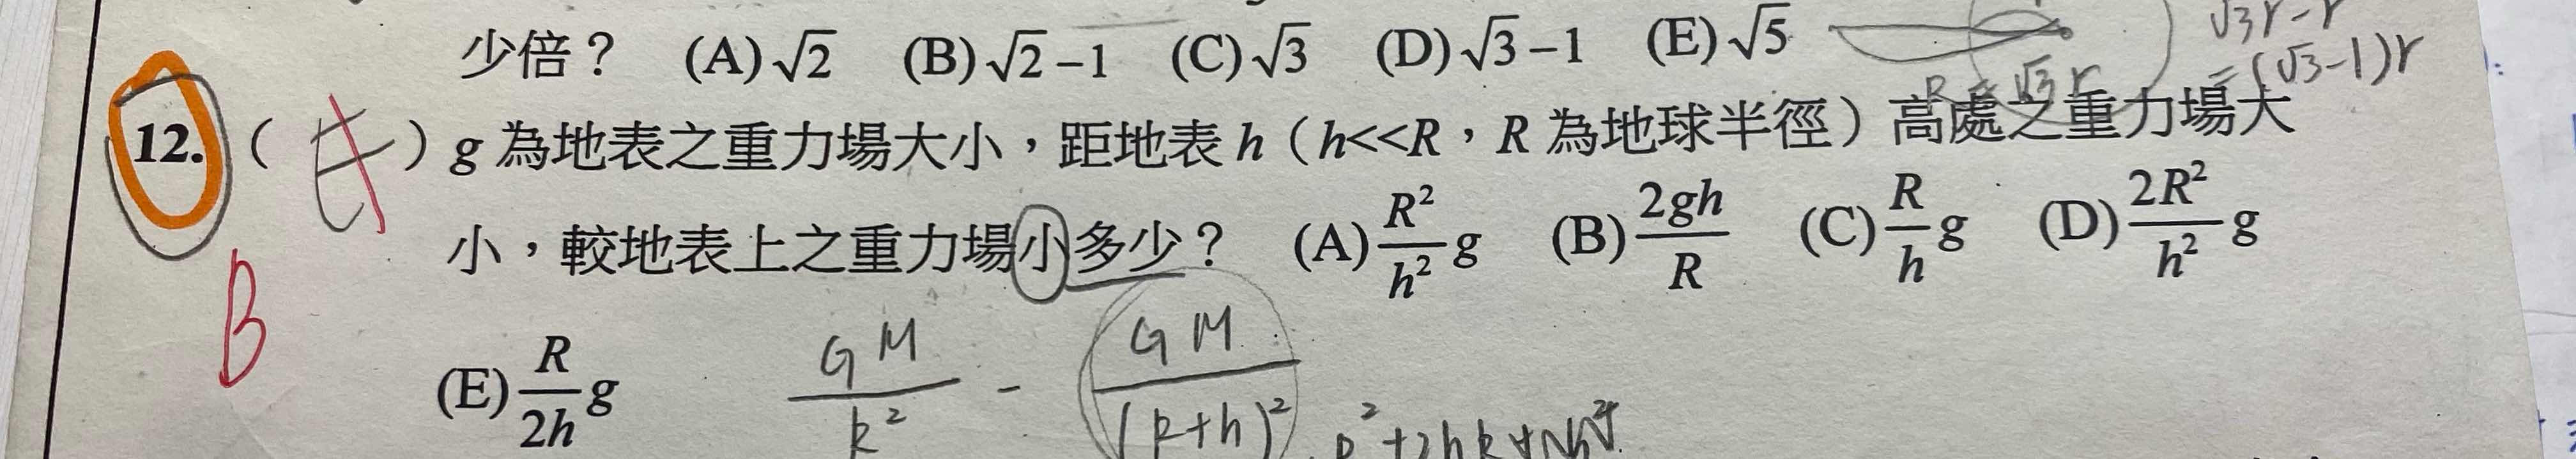 少倍？ (A)√2 (B)√2−1 (C)√3 (D)√3−1 (E)√5
√3r−r
=(√3−1)r
12.（ ）g 為地表之重力場大小，距地表 h（h<<R，R 為地球半徑）高處之重力場大
小，較地表上之重力場小多少？ (A) R²/h² g (B) 2gh/R (C) R/h g (D) 2R²/h² g
B
(E) R/2h g
GM/R² − GM/(R+h)²